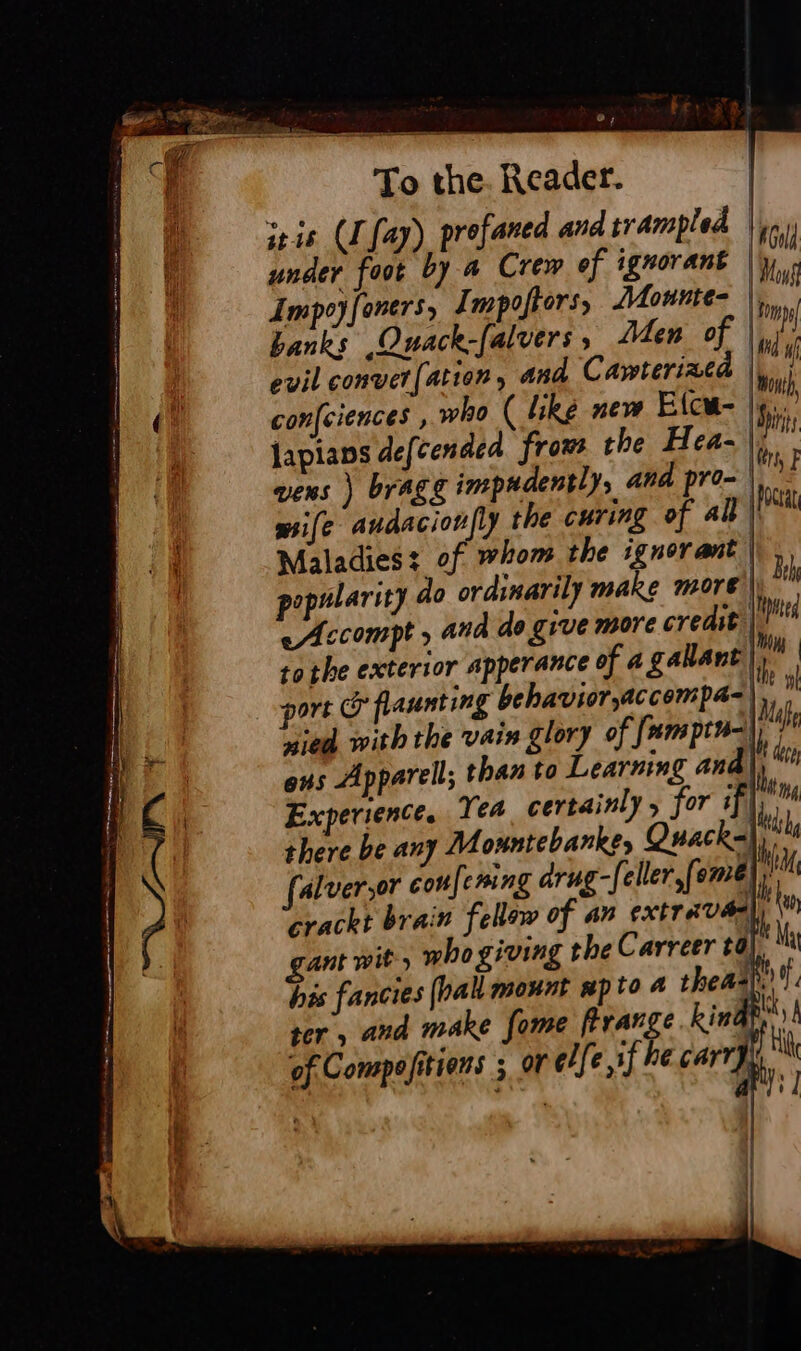 To the Reader.
it is (I ſay) profaned and trampled
under foot by a Crew of ignorant
Impoyſoners, Impoſtors, Mounte-
banks Quack-ſalvers, Men of
evil converſation, and Cawterized
conſciences, who (like new Eſcu-
lapians deſcended from the Hea-
vens) bragg impudently, and pro-
miſe audaciouſly the curing of all
Maladies: of whom the ignorant
popularity do ordinarily make more
Accompt, and do give more credit
to the exterior apperance of a gallant
port & flaunting behavior, accompa-
nied with the vain glory of ſumptu-
ous Apparell; than to Learning and
Experience. Yea certainly, for if
there be any Mountebanke, Quack-
ſalver, or couſening drug-ſeller, ſome
crackt brain fellow of an extrava-
gant wit, who giving the Carreer to
his fancies ſhall mount up to a thea-
ter, and make ſome ſtrange kind
of Compoſitions; or elſe, if he carry